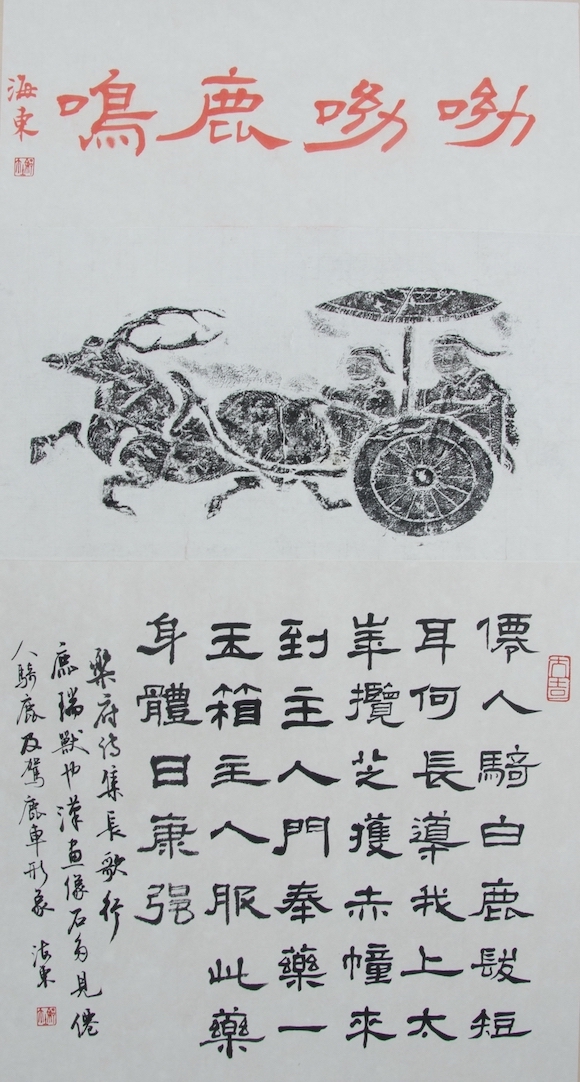 呦呦鹿鳴
海東
僊人騎白鹿髮短
耳何長導我上太
崋攬芝獲赤幢來
到主人門奉藥一
玉箱主人服此藥
身體日康强
樂府詩集長歌行
鹿瑞獸也漢畫像石多見僊
人騎鹿及駕鹿車形象 海東
大吉